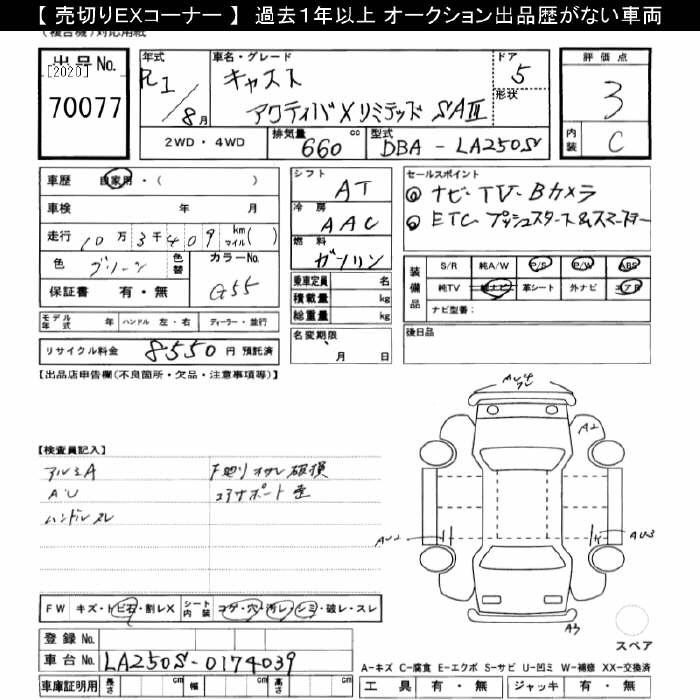 【 売切りEXコーナー 】 過去１年以上 オークション出品歴がない車両
出品No. [2020]
70077
年式 R1/8月
車名・グレード キャスト
アクティバXリミテッド SAⅢ
ドア 形状 5
評価点 3
内装 C
2WD・4WD
排気量 660 cc
型式 DBA-LA250S
車歴 自家用・( )
車検 年 月
走行 10万3千409 km マイル ( )
色 グリーン 色替 カラーNo. G55
保証書 有・無
シフト AT
冷房 AAC
燃料 ガソリン
乗車定員 名
積載量 kg
総重量 kg
名変期限 月 日
セールスポイント
◎ナビ-TV-Bカメラ
◎ETC プッシュスタート&スマートキー
装備品 S/R 純A/W P/S P/W ABS
純TV 純ナビ 革シート 外ナビ エアB
ナビ型番:
後日品
モデル年式 年 ハンドル 左・右 ディーラー・並行
リサイクル料金 8550 円 預託済
【出品店申告欄(不良箇所・欠品・注意事項等)】
【検査員記入】
アルミA 下廻りオサレ破損
AU コアサポート歪
ハンドルスレ
AU4
A2
AU2
AU3
A3
スペア
FW キズ・トビ石・割レX シート内装 コゲ・穴・汚レ・シミ・破レ・スレ
登録No.
車台No. LA250S-0174039
車庫証明用 長さ cm 幅 cm 高さ cm
A-キズ C-腐食 E-エクボ S-サビ U-凹ミ W-補修 XX-交換済
工具 有・無 ジャッキ 有・無